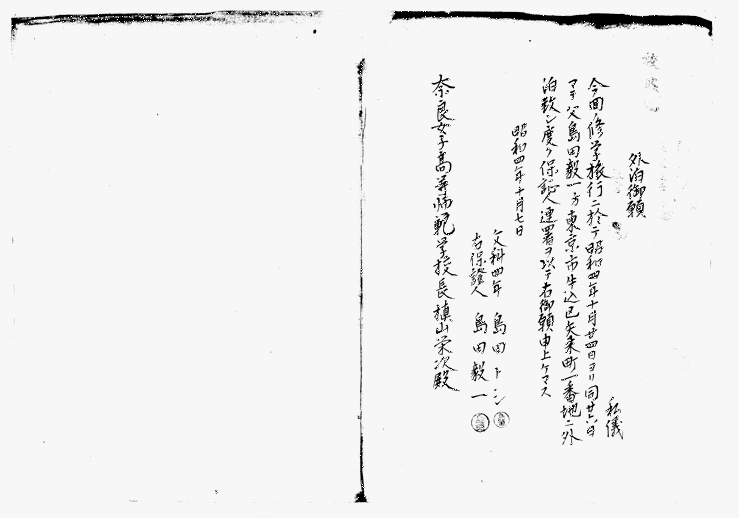 外泊御願
私儀
今回修学旅行ニ於テ昭和四年十月廿四日ヨリ同廿六日
マデ父島田毅一方東京市牛込区矢来町一番地ニ外
泊致シ度ク保証人連署ヲ以テ右御願申上ケマス
昭和四年十月七日
文科四年 島田トシ
右保證人 島田毅一
奈良女子高等師範学校長槇山栄次殿